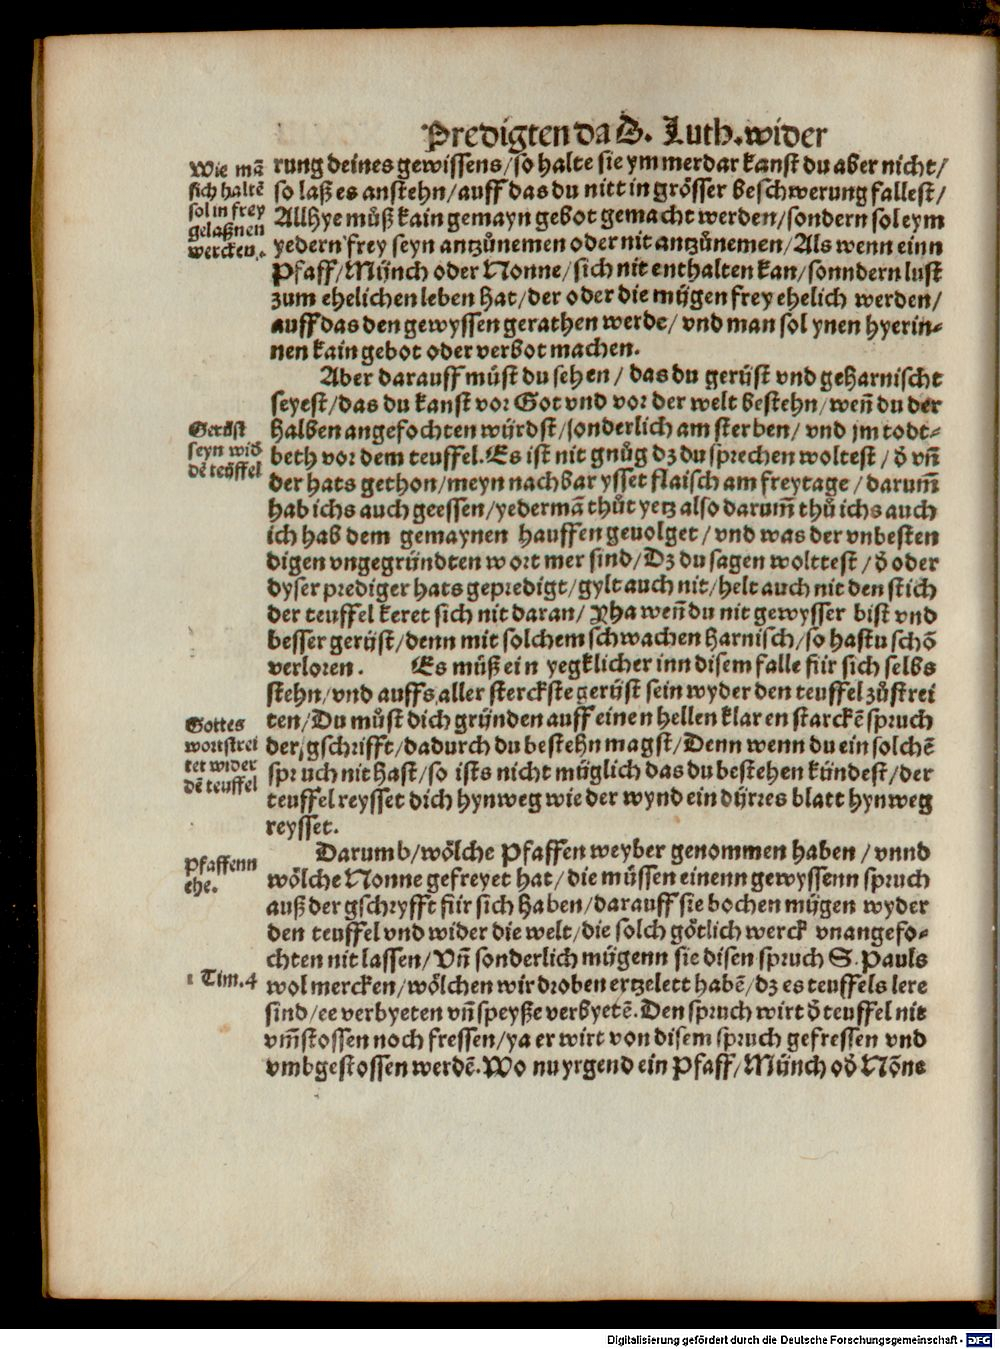 Predigten da D. Luth. wider
Wie mā
sich haltē
sol in frey
gelaßnen
wercken.
rung deines gewissens/so halte sie ymmerdar kanst du aber nicht/
so laß es anstehn/auff das du nitt in grösser beschwerung fallest/
Allhye můß kain gemayn gebot gemacht werden/sondern sol eym
yedern frey seyn antzůnemen oder nit antzůnemen/Als wenn einn
Pfaff/Münch oder Nonne/sich nit enthalten kan/sonndern lust
zum ehelichen leben hat/der oder die mügen frey ehelich werden/
auff das den gewyssen gerathen werde/ vnd man sol ynen hyerin-
nen kain gebot oder verbot machen.
Aber darauff můst du sehen / das du gerüst vnd geharnischt
seyest/das du kanst vor Got vnd vor der welt bestehn/weñ du der
Gerüst
seyn wid̄
dē teüffel
halben angefochten würdst/sonderlich am sterben/ vnd jm todt-
beth vor dem teuffel. Es ist nit gnůg dz du sprechen woltest / d̄ vñ
der hats gethon/meyn nachbar ysset flaisch am freytage / darum̄
hab ichs auch geessen/yedermā thůt yetz also darum̄ thů ichs auch
ich hab dem gemaynen hauffen geuolget / vnd was der vnbesten
digen vngegründten wort mer sind/Dz du sagen wolttest / d̄ oder
dyser prediger hats gepredigt/gylt auch nit/helt auch nit den stich
der teuffel keret sich nit daran/ Yha weñ du nit gewysser bist vnd
besser gerüst/denn mit solchem schwachen harnisch/so hastu schō
verloren. Es můß ein yegklicher inn disem falle für sich selbs
stehn/vnd auffs aller sterckste gerüst sein wyder den teuffel zůstrei
Gottes
wort strei
tet wider
dē teuffel
ten/Du můst dich gründen auff einen hellen klaren starckē spruch
der gschrifft/dadurch du bestehn magst/Denn wenn du ein solchē
spruch nit hast/so ists nicht müglich das du bestehen kündest/der
teuffel reysset dich hynweg wie der wynd ein dürres blatt hynweg
reysset.
Pfaffenn
ehe.
Darumb/wölche Pfaffen weyber genommen haben / vnnd
wölche Nonne gefreyet hat/die müssen einenn gewyssenn spruch
auß der gschryfft für sich haben/darauff sie bochen mügen wyder
den teuffel vnd wider die welt/die solch götlich werck vnangefo-
chten nit lassen/Vñ sonderlich mügenn sie disen spruch S. Pauls
1 Tim. 4
wol mercken/wölchen wir droben ertzelett habē/dz es teuffels lere
sind/ee verbyeten vñ speyße verbyetē. Den spruch wirt d̄ teuffel nit
vm̄stossen noch fressen/ya er wirt von disem spruch gefressen vnd
vmbgestossen werdē. Wo nu yrgend ein Pfaff/Münch od̄ Nōne
Digitalisierung gefördert durch die Deutsche Forschungsgemeinschaft - DFG